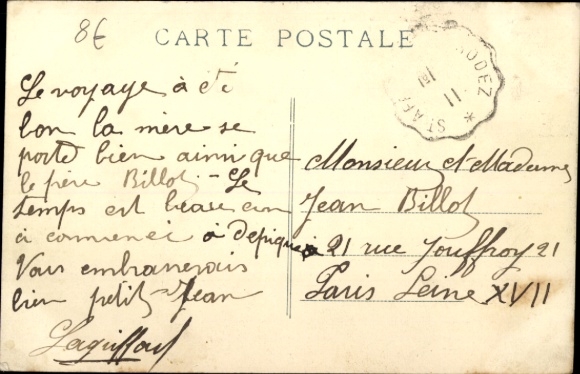 8€
CARTE POSTALE
RODEZ
ST AFF
11
Le voyage à été
bon la mère se
porte bien ainsi que
le père Billot - Le
temps est beau on
à commencé à depiquer
Vous embrasserais
bien petit Jean
Monsieur et Madame
Jean Billot
21 rue Jouffroy 21
Paris Seine XVII